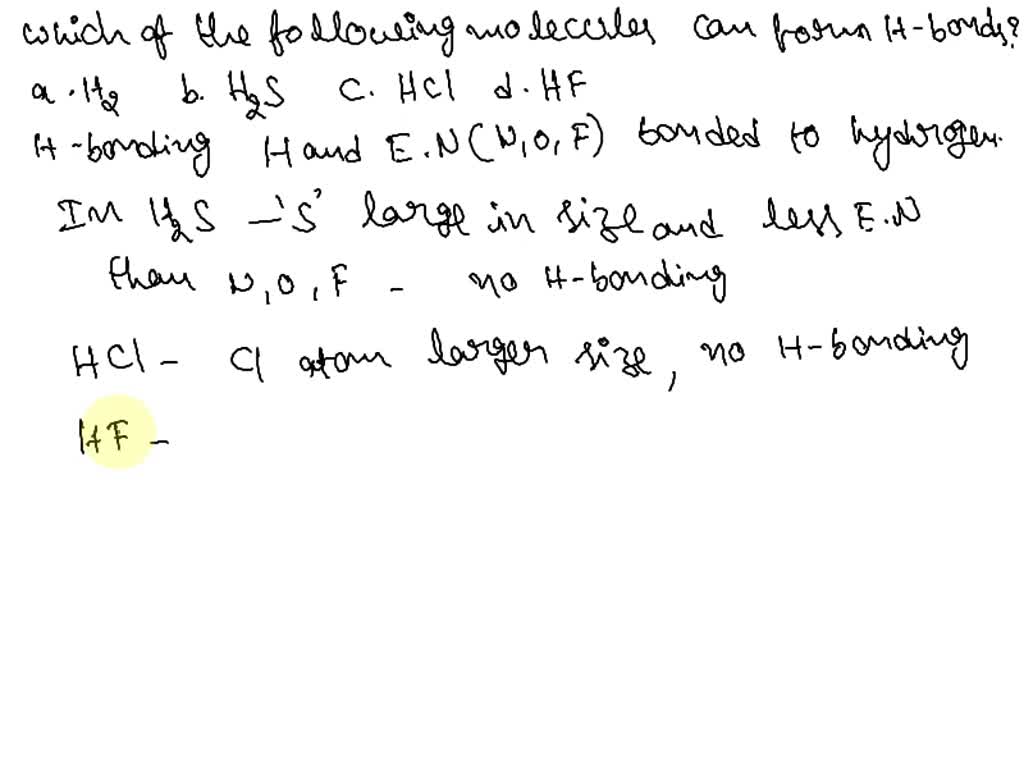 which of the following molecules can form H-bonds?
a. H2 b. H2S c. HCl d. HF
H-bonding H and E.N (N, O, F) bonded to hydrogen.
In H2S – 'S' large in size and less E.N
than N, O, F – no H-bonding
HCl – Cl atom larger size, no H-bonding
HF –